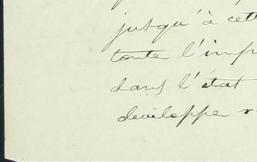 jusqu'à cett
toute l'impr
dans l'état
développe